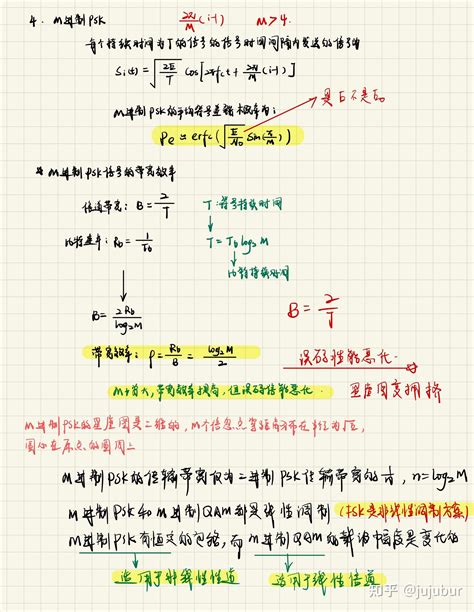 4. M进制PSK  2π/M (i-1)  M>4.
每个持续时间为T的信号的信号时间间隔内发送的信号为
Si(t) = √(2E/T) cos[2πfct + 2π/M (i-1)]
是E不是Eb
M进制PSK的平均符号差错概率为:
Pe ≈ erfc(√(E/N0) sin(π/M))
# M进制PSK信号的带宽效率
信道带宽: B = 2/T  T:符号持续时间
比特速率: Rb = 1/Tb  T = Tb log2 M
比特持续时间
B = 2Rb/log2M  B = 2/T
带宽效率: ρ = Rb/B = log2M/2  误码性能恶化
M增大,带宽效率提高,但误码性能恶化.  星座图变拥挤
M进制PSK的星座图是二维的,M个信号点等距离分布在半径为√E,
圆心在原点的圆周上
M进制PSK的传输带宽仅为二进制PSK传输带宽的1/n, n=log2M
M进制PSK和M进制QAM都是线性调制(FSK是非线性调制方案)
M进制PSK有恒定的包络,而M进制QAM的载波幅度是变化的
适用于非线性信道  适用于线性信道
知乎 @jujubur